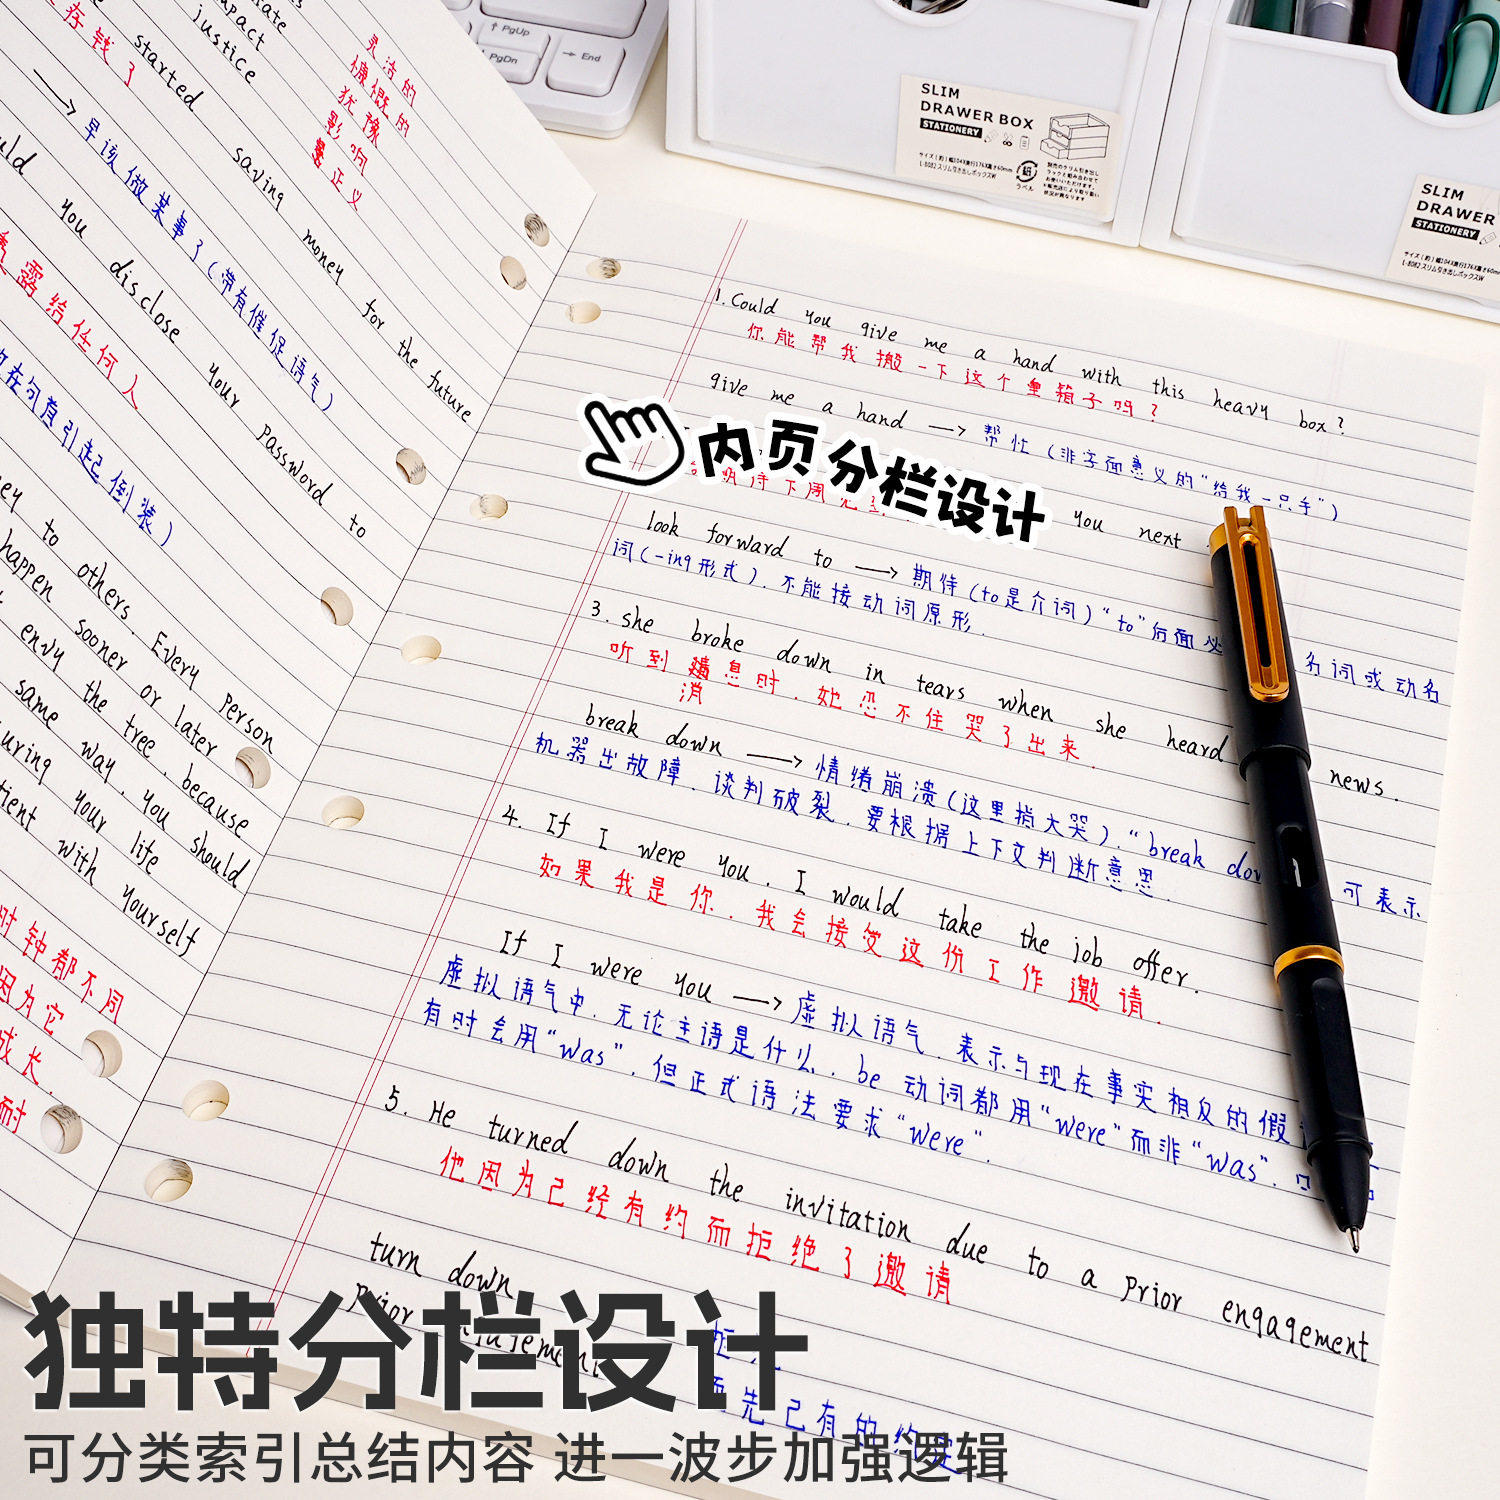 PgUp
PgDn
End
SLIM
DRAWER BOX
STATIONERY
サイズ(約)幅104X奥行176X高さ60mm
L-8082 スリム引き出しボックスW
ラベル
SLIM
DRAWER
STATIONERY
L-8082 スリム引き出しボックスW
impact
justice
灵活的
慷慨的
犹豫
影响
正义
存钱了
started saving money for the future
→ 早该做某事了(带有催促语气)
you disclose your password to
露给任何人
在句首引起倒装)
to others. Every person
happen sooner or later
envy the tree, because
same way, you should
during your life
with yourself
时钟都不同
因为它
成长.
耐
1. Could you give me a hand with this heavy box?
你能帮我搬一下这个重箱子吗?
give me a hand → 帮忙(非字面意义的"给我一只手")
内页分栏设计
you next
look forward to → 期待(to是介词)"to"后面必 名词或动名
词(-ing形式),不能接动词原形.
3. she broke down in tears when she heard news.
听到消息时,她忍不住哭了出来.
break down → 情绪崩溃(这里指大哥),"break dow 可表示
机器出故障、谈判破裂,要根据上下文判断意思.
4. If I were you, I would take the job offer.
如果我是你,我会接受这份工作邀请.
If I were you → 虚拟语气,表示与现在事实相反的假
虚拟语气中,无论主语是什么,be 动词都用"were"而非"was".
有时会用"was",但正式语法要求"were".
5. He turned down the invitation due to a prior engagement
他因为已经有约而拒绝了邀请
turn down
prior
先已有的约定
独特分栏设计
可分类索引总结内容 进一波步加强逻辑